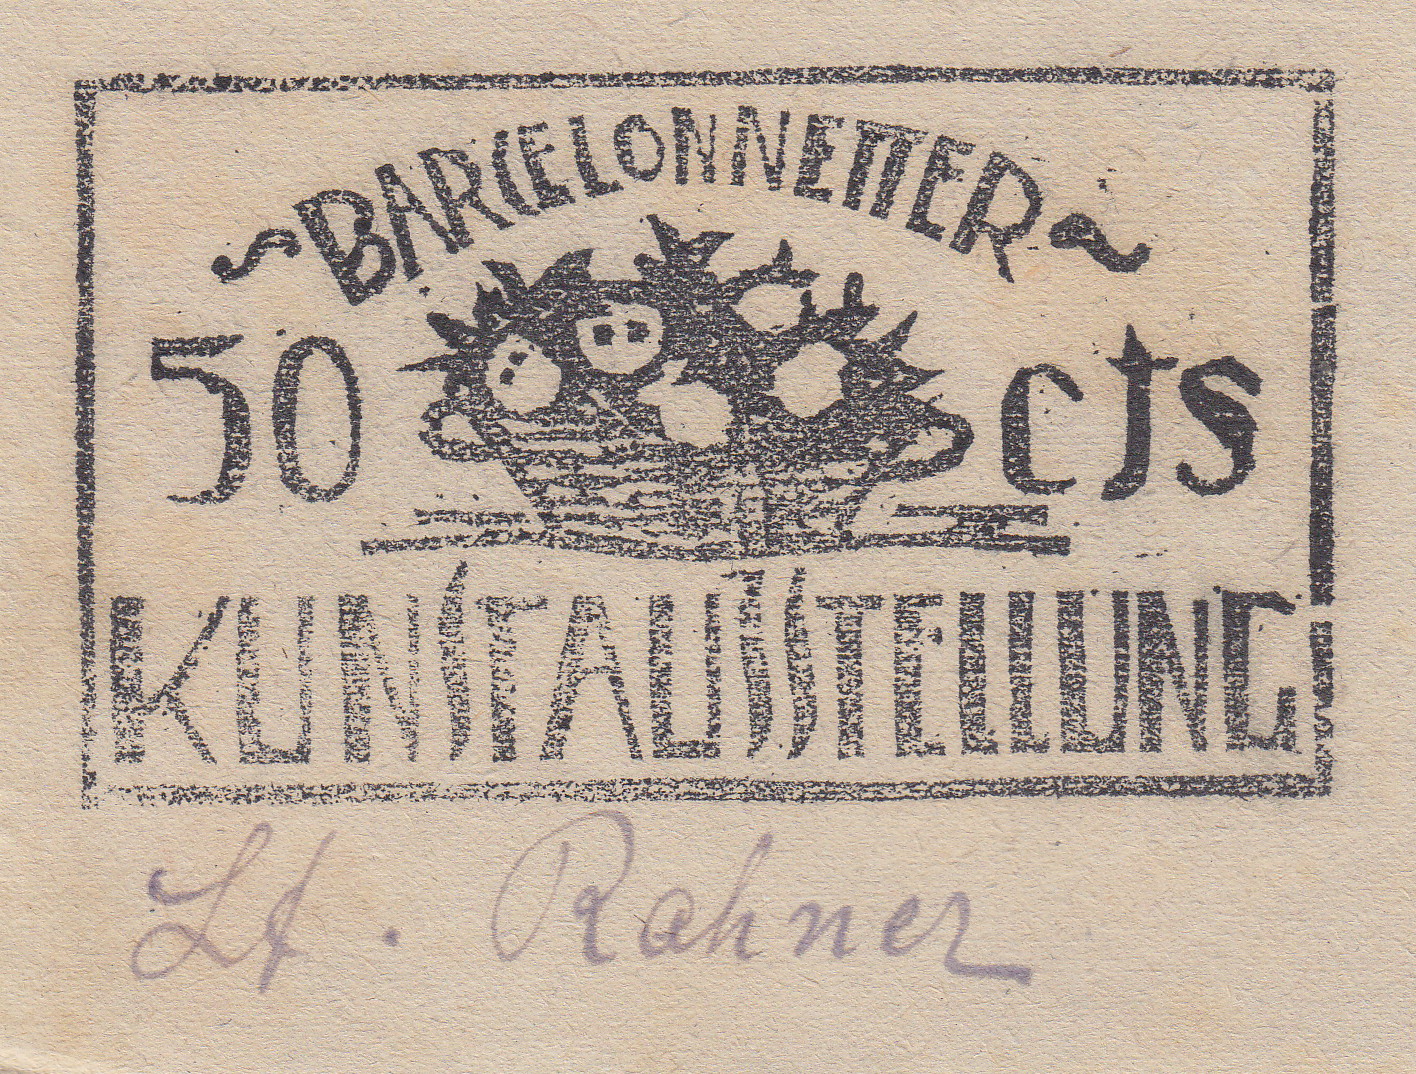 ~BARCELONNETTER~
50 cts
KUNSTAUSSTELLUNG
Lt. Rahner